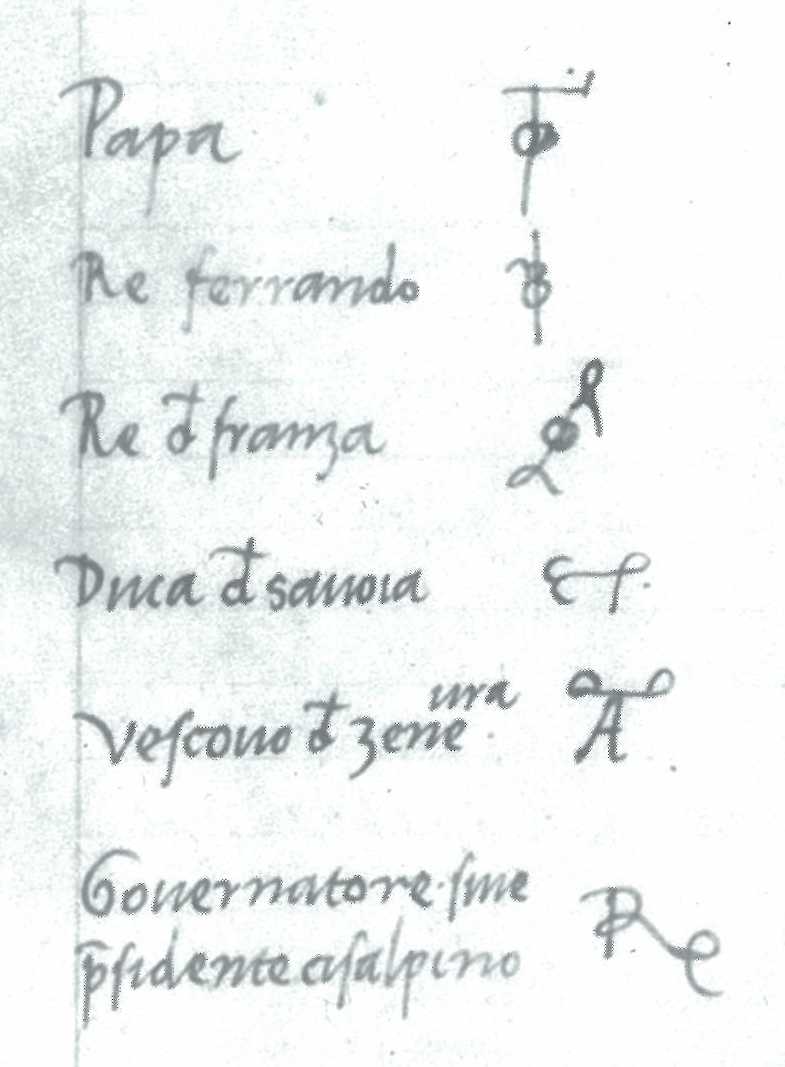 Papa
Re ferrando
Re đ franza
Duca đ sauoia
Vescouo đ zeneura
Gouernatore siue
p̄sidente cisalpino